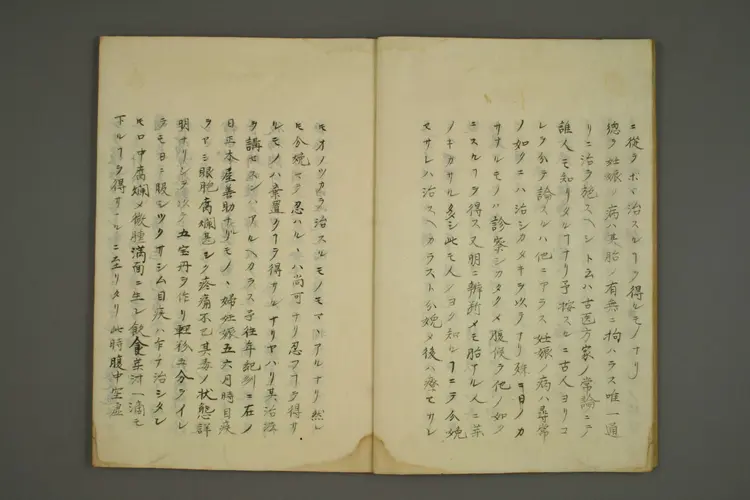 ニ從ヲホマ治スルヿヲ得ルモノナリ
總テ妊娠ノ病ハ其胎ノ有無ニ拘ハラス唯一通
リニ治ヲ施スヘシト云ハ古医方家ノ常論ニテ
誰人モ知リタルヿナリ予按スルニ古人ヨリコ
レヲ分テ論スルハ他ニアラス妊娠ノ病ハ尋常
ノ如クニハ治シカタキヲ以テナリ殊ニ日ノカ
サナルモノハ診察シカタク腹候ヲ他ノ如ク
ニスルヿヲ得ス又明ニ辨斷メモ胎ナル人ニ茶
ノキカサル多シ此モ人ノヨク知ルヿニテ分娩
セサレハ治スヘカラスト分娩メ後ハ療セサレ
ヒオノツカラ治スルモノモママアルナリ然レ
ヒ分娩マテ忍ハルヽハ尚可ナリ忍フヿヲ得サ
ルモノハ棄置クヿヲ得サルナリヤハリ其治療
ヲ講セスンハアルヘカラス子往年紀州ニ在ノ
日正本屋善助ナルモノヽ婦妊娠五六月時目疾
ヲヤミ眼胞腐爛甚シク疼痛不已其毒ノ状態詳
明ナリシヲ以テ五宝丹ヲ作リ軽粉半分ヲイレ
ヒ口中腐爛メ微腫満面ニ生シ飲食茶汁一滴モ
下ルヿヲ得サルニ至リタリ此時腹中空虚